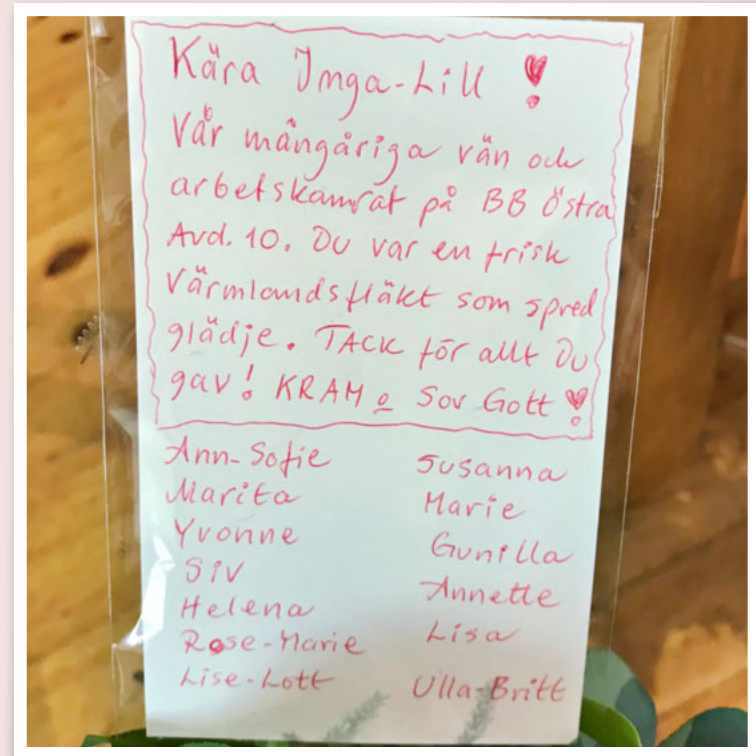 Kära Inga-Lill !
Vår mångåriga vän och
arbetskamrat på BB Östra
Avd. 10. Du var en frisk
Värmlandsfläkt som spred
glädje. TACK för allt Du
gav! KRAM o Sov Gott !
Ann-Sofie
Marita
Yvonne
Siv
Helena
Rose-Marie
Lise-Lott
Susanna
Marie
Gunilla
Annette
Lisa
Ulla-Britt